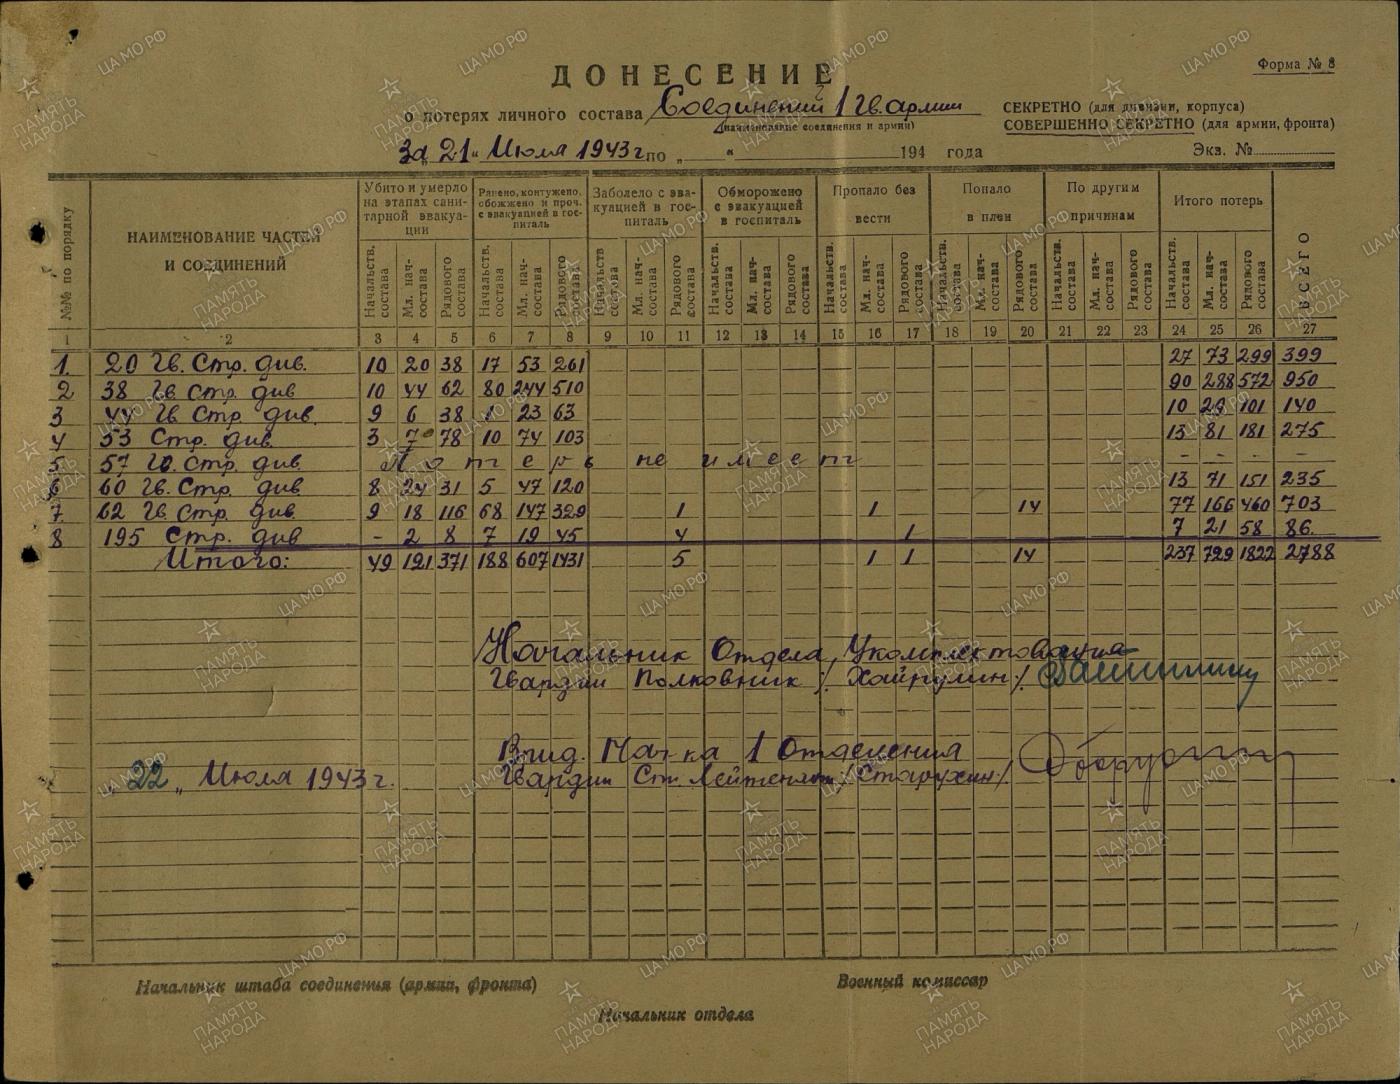 Форма № 8
ДОНЕСЕНИЕ
о потерях личного состава Соединений 1 Гв. армии
(наименование соединения и армии)
СЕКРЕТНО (для дивизии, корпуса)
СОВЕРШЕННО СЕКРЕТНО (для армии, фронта)
За „21“ Июля 1943 г по „ “ 194 года
Экз. №
№№ по порядку
НАИМЕНОВАНИЕ ЧАСТЕЙ И СОЕДИНЕНИЙ
Убито и умерло на этапах санитарной эвакуации
Ранено, контужено, обожжено и проч. с эвакуацией в госпиталь
Заболело с эвакуацией в госпиталь
Обморожено с эвакуацией в госпиталь
Пропало без вести
Попало в плен
По другим причинам
Итого потерь
ВСЕГО
Начальств. состава Мл. нач-состава Рядового состава Начальств. состава Мл. нач-состава Рядового состава Начальств состава Мл. нач-состава Рядового состава Начальств. состава Мл. нач-состава Рядового состава Начальств. состава Мл. нач-состава Рядового состава Начальств. состава Мл. нач-состава Рядового состава Начальств. состава Мл. нач-состава Рядового состава Начальств. состава Мл. нач-состава Рядового состава
1 2 3 4 5 6 7 8 9 10 11 12 13 14 15 16 17 18 19 20 21 22 23 24 25 26 27
1. 20 Гв. Стр. див. 10 20 38 17 53 261 27 73 299 399
2 38 Гв Стр. див 10 44 62 80 244 510 90 288 572 950
3 44 Гв Стр. див. 9 6 38 1 23 63 10 29 101 140
4 53 Стр. див. 3 7 78 10 74 103 13 81 181 275
5 57 Гв. Стр. див Потерь не имеет - - - -
6 60 Гв. Стр. див 8 24 31 5 47 120 13 71 151 235
7. 62 Гв. Стр. див. 9 18 116 68 147 329 1 1 14 77 166 460 703
8 195 Стр. див - 2 8 7 19 45 4 1 7 21 58 86.
Итого: 49 121 371 188 607 1431 5 1 1 14 237 729 1822 2788
Начальник Отдела Укомплектования
Гвардии Полковник /Хайрулин/
Врид. Нач-ка 1 Отделения
Гвардии Ст. Лейтенант /Старухин/
„22„ Июля 1943 г.
Начальник штаба соединения (армии, фронта)
Военный комиссар
Начальник отдела